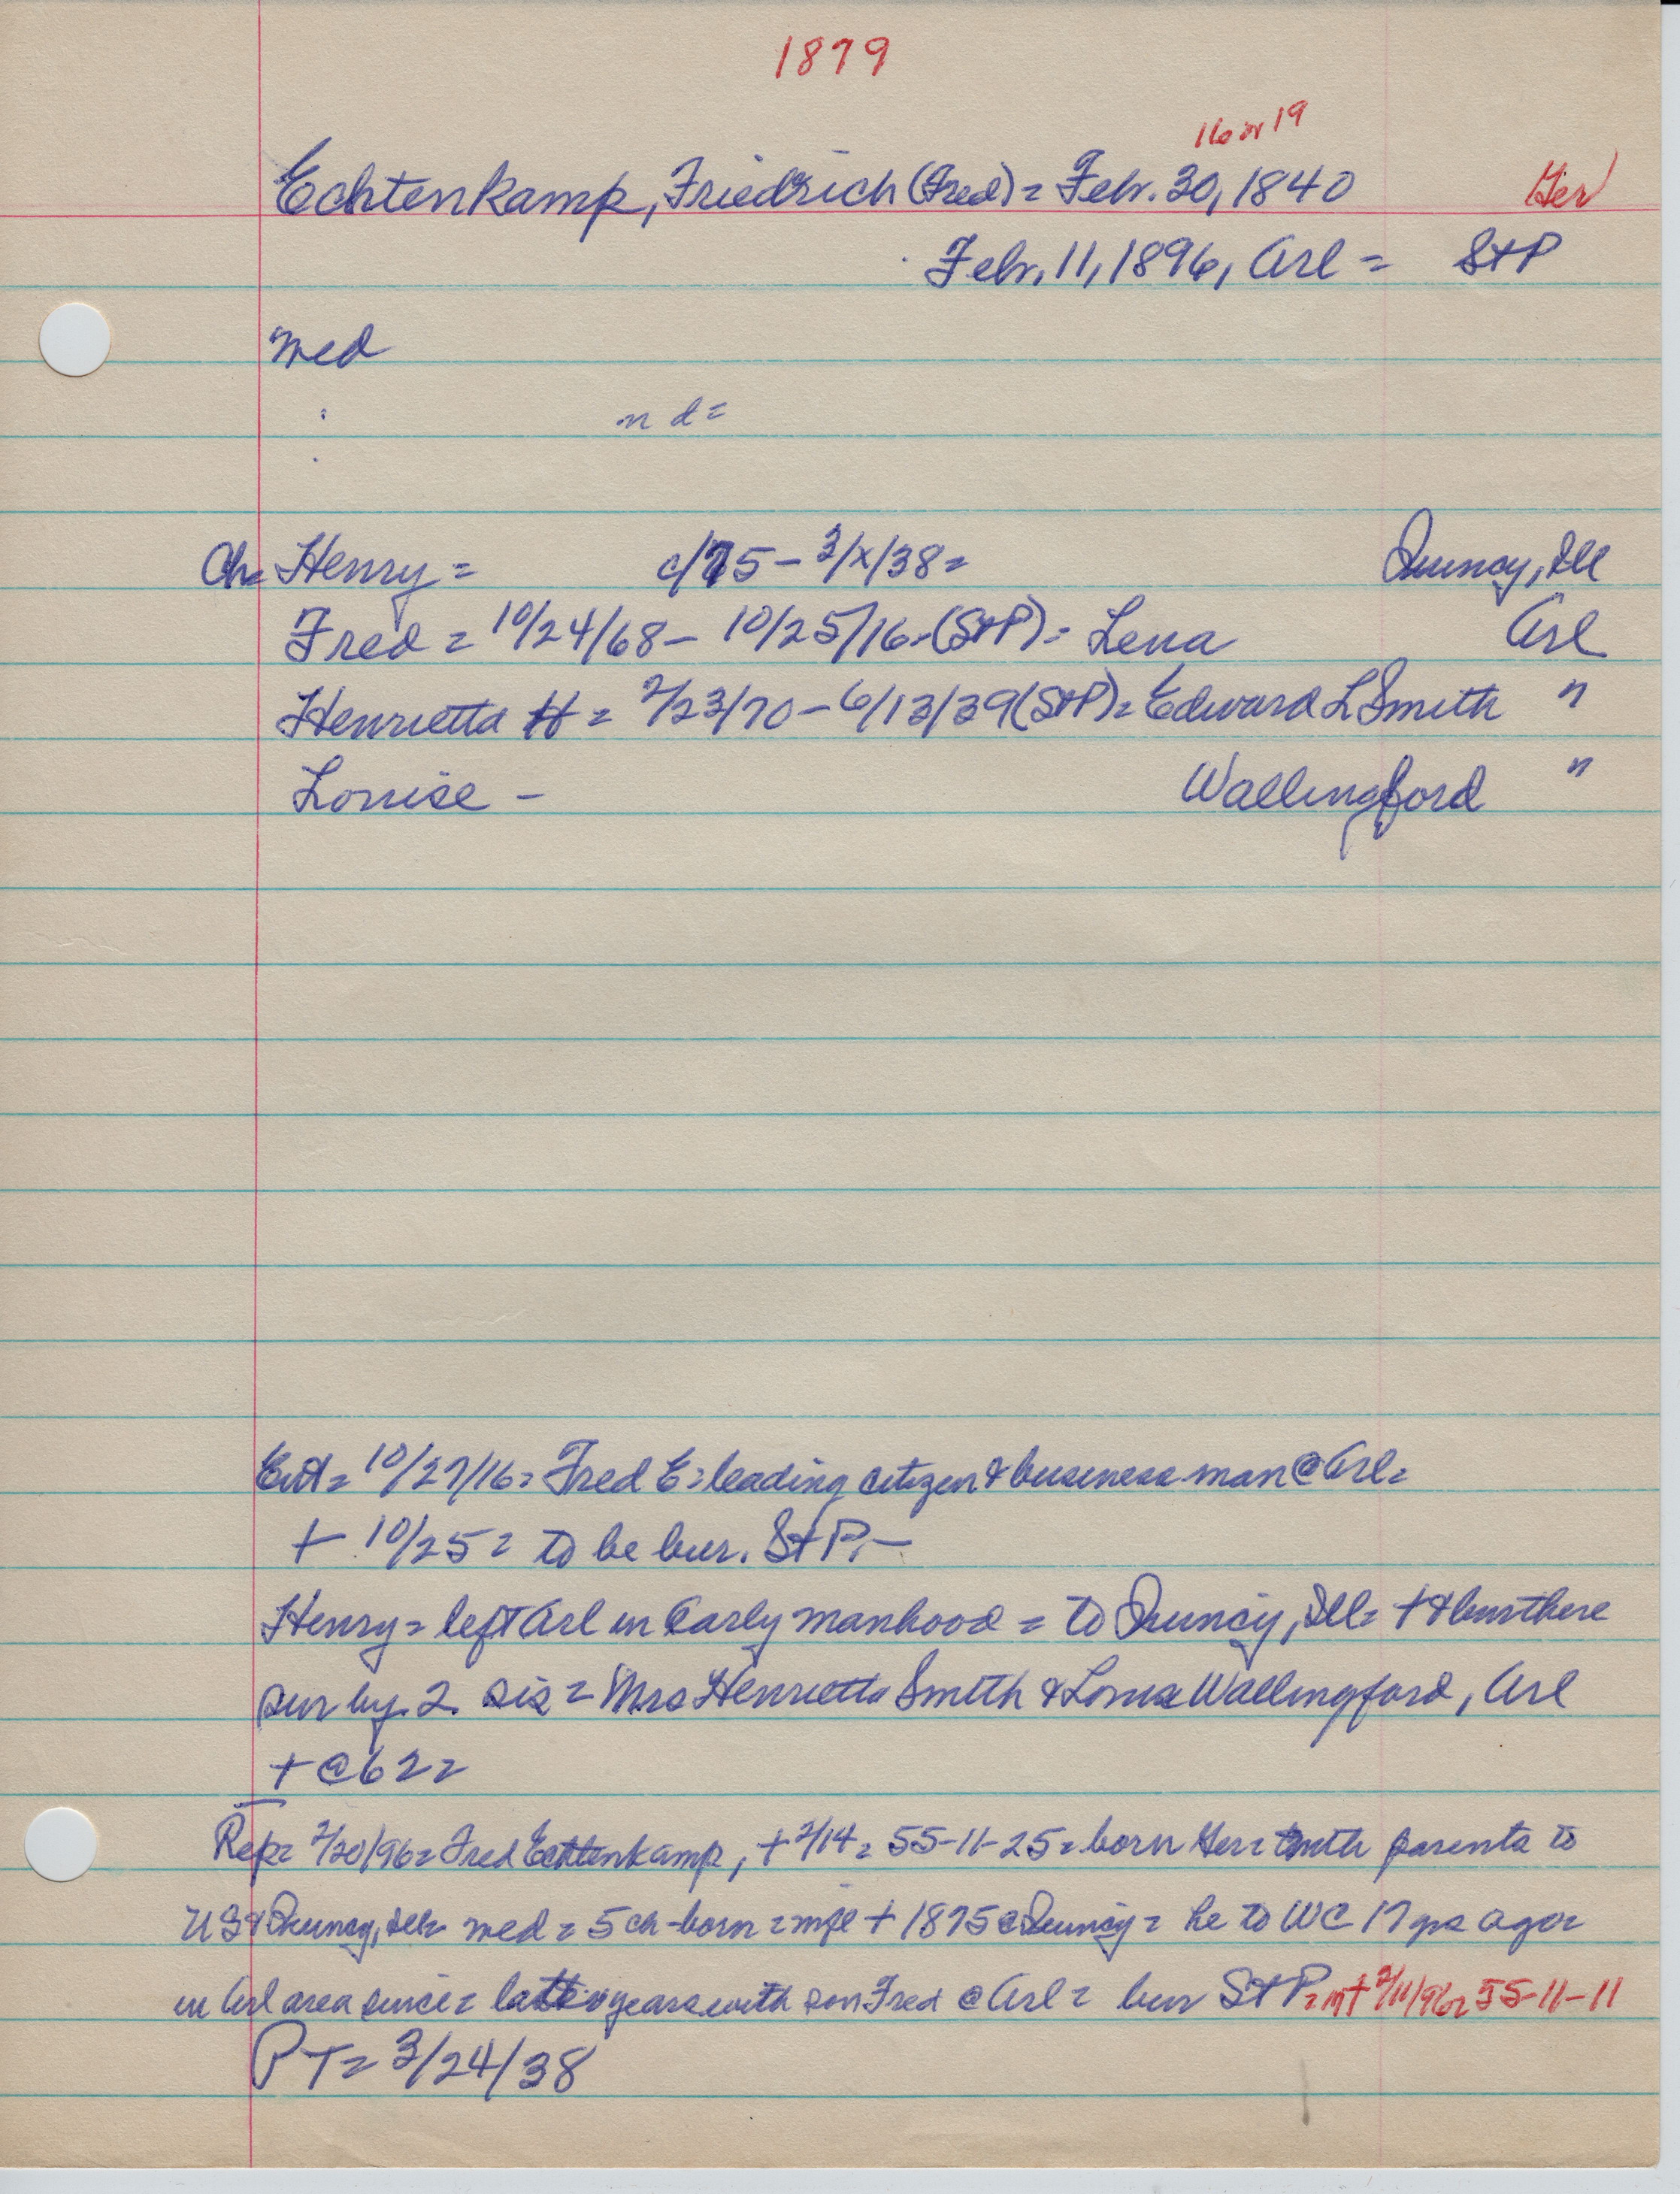 1879
16 or 19
Echtenkamp, Friedrich (Fred) = Febr. 30, 1840 Ger
Febr. 11, 1896, Arl = St P
med
n d =
Ch= Henry = c/75 - 3/x/38 = Quincy, Ill
Fred = 10/24/68 - 10/25/16 - (St P) = Lena Arl
Henrietta H = 2/23/70 - 6/13/39 (St P) = Edward L Smith "
Louise - Wallingford "
Ent = 10/27/16 = Fred E = leading citizen & business man @ Arl =
+ 10/25 = to be bur. St P. -
Henry = left Arl in early manhood = to Quincy, Ill = + & bur there
sur by 2 sis = Mrs Henrietta Smith & Louise Wallingford, Arl
+ @ 62 =
Rep = 2/20/96 = Fred Echtenkamp, + 2/14 = 55-11-25 = born Ger = with parents to
US & Quincy, Ill = med = 5 ch born = + 1875 @ Quincy = he to WC 17 yrs ago =
in Arl area since = latter years with son Fred @ Arl = bur St P = + 2/11/96 = 55-11-11
PT = 3/24/38